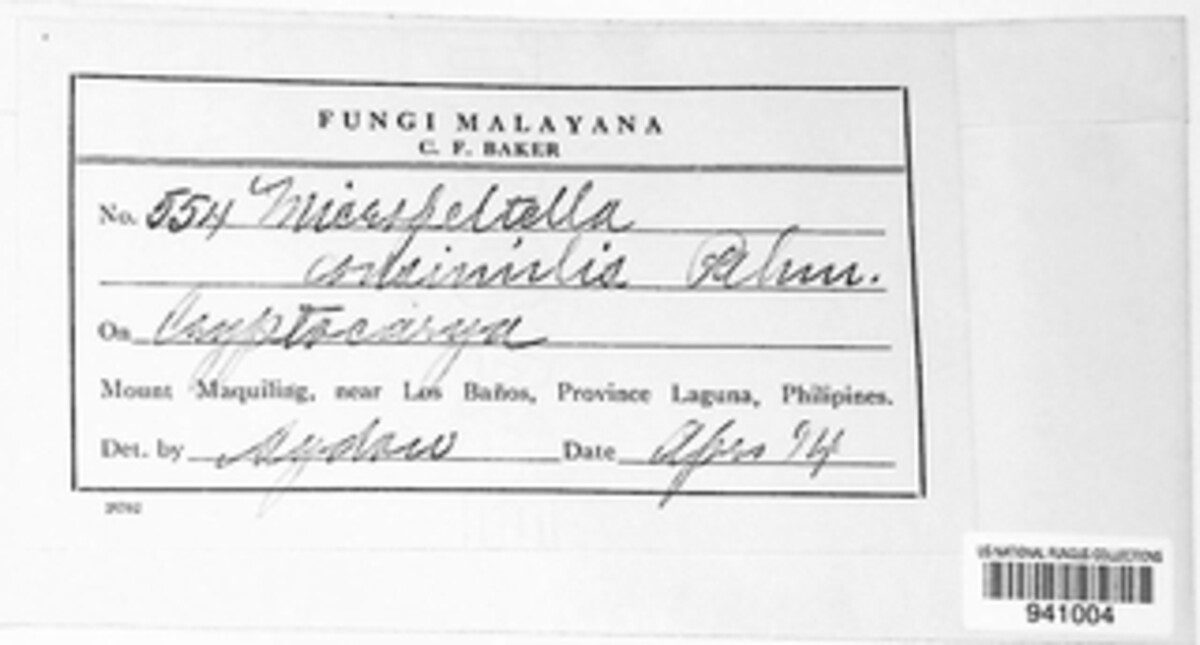 FUNGI MALAYANA
C. F. BAKER
No. 554 Micropeltella
consimilis Rehm.
On Cryptocarya
Mount Maquiling, near Los Baños, Province Laguna, Philipines.
Det. by Sydow Date Apr. '14
20762
US NATIONAL FUNGUS COLLECTIONS
941004